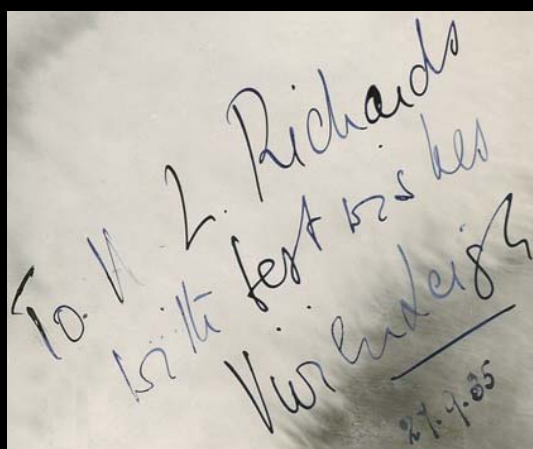 To. H. L. Richards
with best wishes
Vivien Leigh
27.9.35